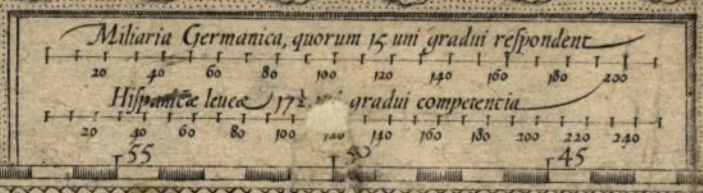 Miliaria Germanica, quorum 15 uni gradui respondent
20 40 60 80 100 120 140 160 180 200
Hispanicæ leucæ 17½ gradui competencia
20 40 60 80 100 140 160 180 200 220 240
55 50 45